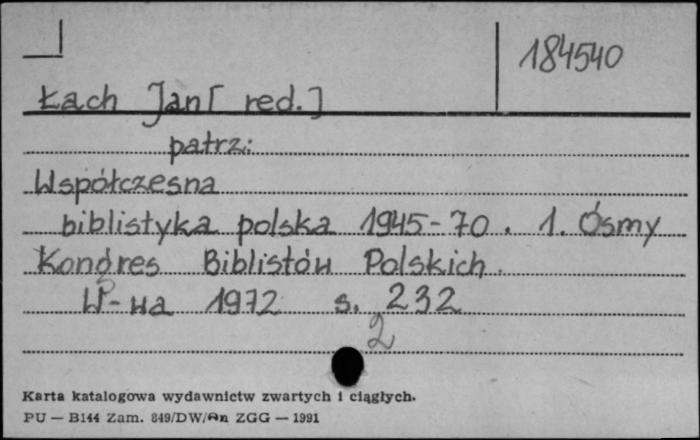 184540
Łach Jan [red.]
patrz:
Współczesna
biblistyka polska 1945-70. 1. Ósmy
Kongres Biblistów Polskich.
W-wa 1972 s. 232
2
Karta katalogowa wydawnictw zwartych i ciągłych.
PU — B144 Zam. 849/DW/An ZGG — 1991